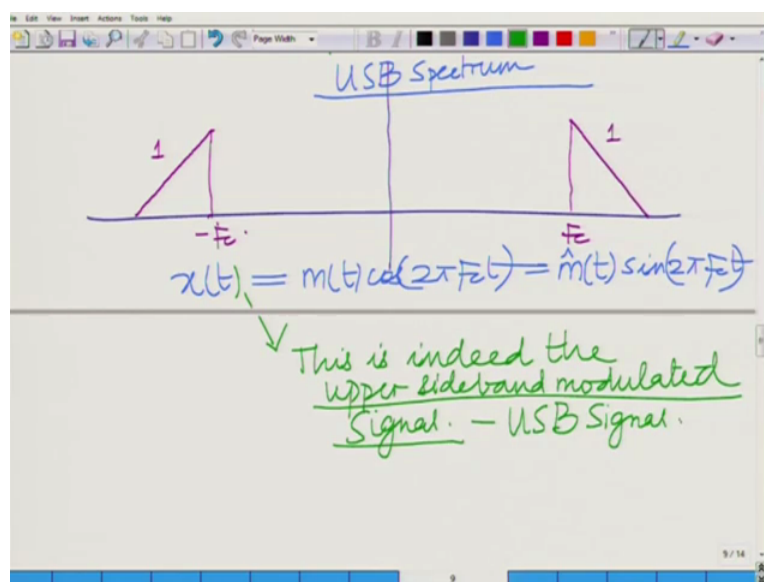 File Edit View Insert Actions Tools Help
Page Width
USB Spectrum
1
1
-Fc.
Fc
x(t) = m(t)cos(2πFct) = m̂(t)sin(2πFct)
This is indeed the
upper sideband modulated
Signal. - USB Signal.
9/14
9